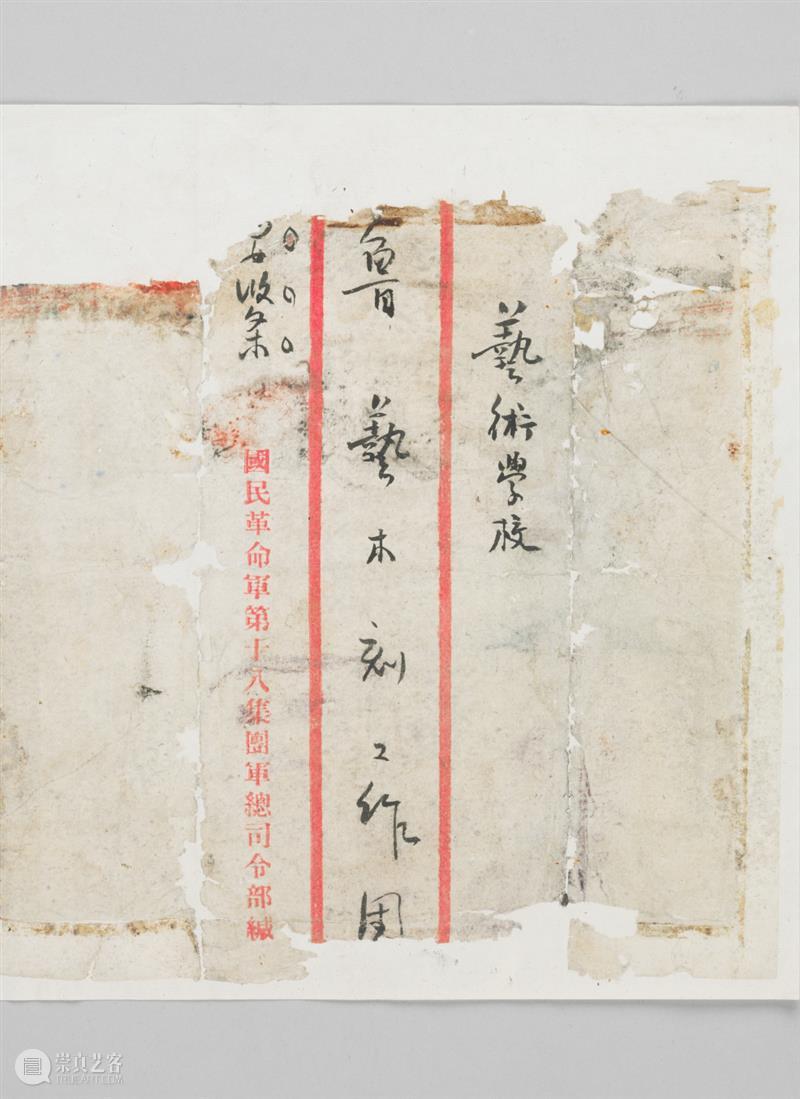 藝術學校
魯藝木刻工作团
收条
國民革命軍第十八集團軍總司令部緘
崇真艺客
TRUEART.COM